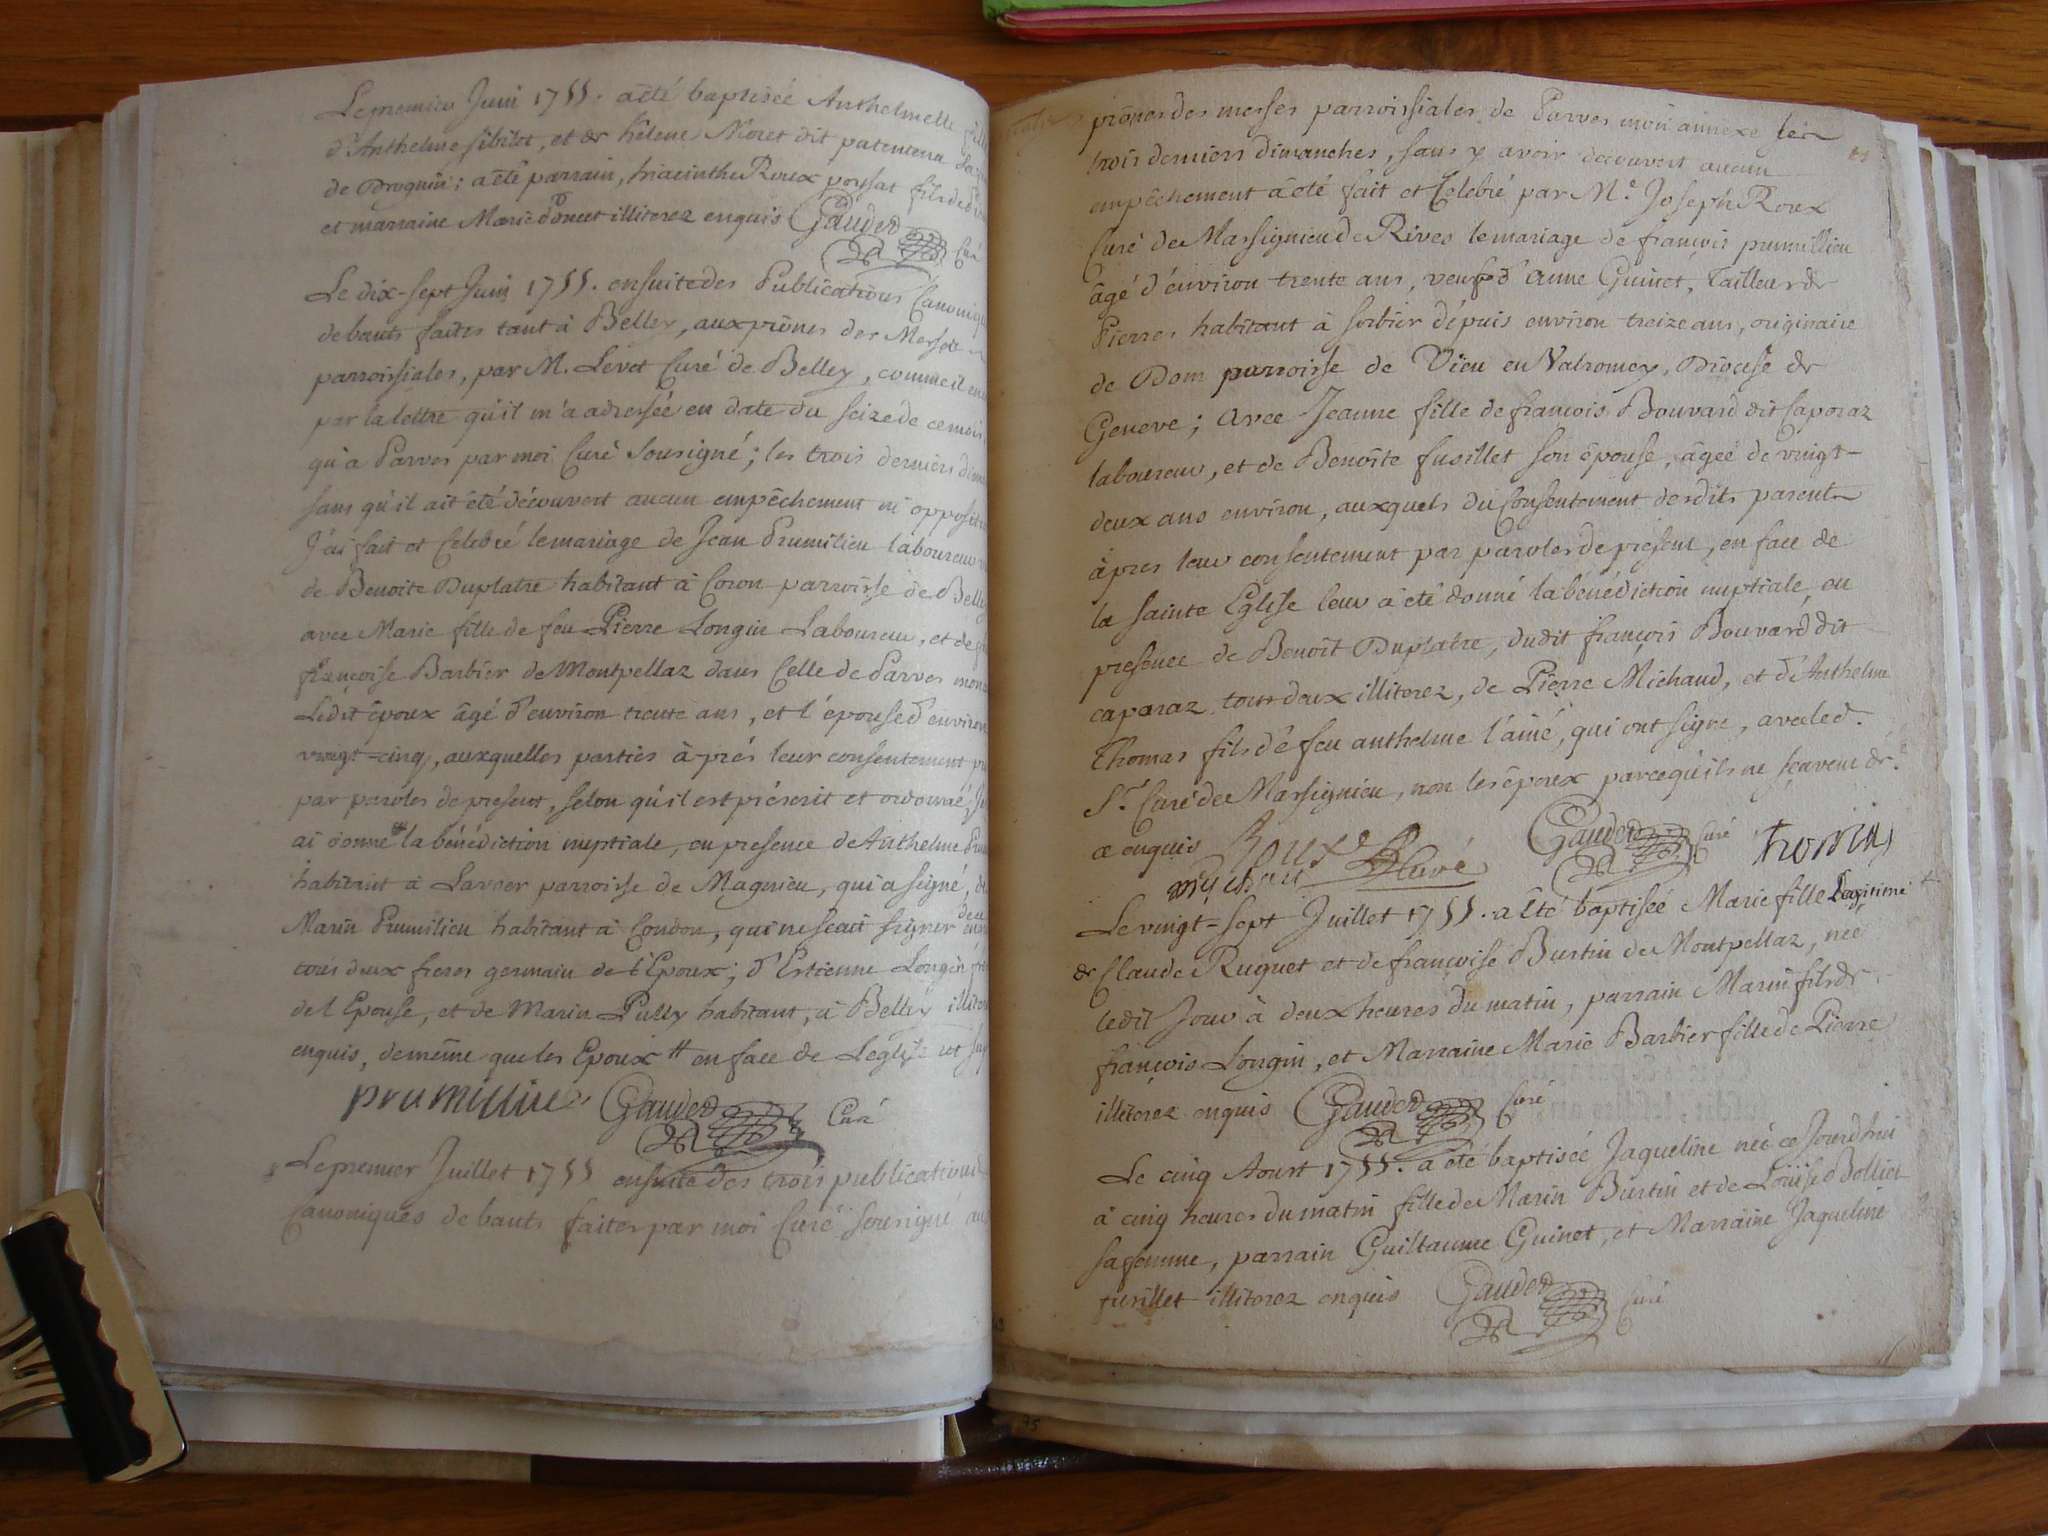 Le premier Juin 1755. a été baptisée Anthelmette fille
d'Anthelme sibilot, et de hélene Moret dit patentena
de Druguin; a été parrain, hiacinthe Roux poysat fils de
et marraine Marie Poncet illiterez enquis Gaudet
Curé
Le dix-sept Juin 1755. ensuite des Publications Canoniques
de bauts faites tant à Belley, aux prônes des Messes
parroissiales, par M. Levet Curé de Belley, comme il
par la lettre qu'il m'a adressée en date du seize de ce mois,
qu'a Parves par moi Curé sousigné; les trois derniers
sans qu'il ait été découvert aucun empêchement ni opposition
J'ai fait et Celebré le mariage de Jean Prumilieu laboureur
de Benoite Duplatre habitant à Coron parroisse de Belley
avec Marie fille de feu Pierre Longin Laboureur, et de
françoise Barbier de Montpellaz dans Celle de Parves mon
Ledit époux âgé d'environ trente ans, et l'épouse d'environ
vingt-cinq, auxquelles parties à près leur consentement
par paroles de present, selon qu'il est préscrit et ordonné,
ai donné la bénédiction nuptiale, en presence de Anthelme
habitant à Lavoer parroisse de Magnieu, qui a signé, de
Marin Prumilieu habitant à Condon, qui ne scait signer
tous deux freres germain de l'Epoux; d'Estienne Longin
de l'Epouse, et de Marin Pully habitant, à Belley
enquis, de même que les Epoux # en face de L'église et
prumilliue Gaudet Curé
Le premier Juillet 1755 ensuite des trois publications
Canoniques de bauts faites par moi Curé sousigné, aux
prônes des messes parroissiales de Parves mon annexe les
trois derniers dimanches, sans y avoir découvert aucun
empêchement a été fait et Celebré par Me. Joseph Roux
Curé de Marsignieu de Rives le mariage de françois prumillieu
âgé d'environ trente ans, veuf d'Anne Guinet, Tailleur de
Pierres habitant à sorbier dépuis environ treize ans, originaire
de Dom parroisse de Vieu en Valromey, Diocese de
Geneve; avec Jeanne fille de françois Bouvard dit Caporaz
laboureur, et de Benoite fusillet son épouse, âgée de vingt-
deux ans environ, auxquels du Consentement desdits parents
à pres leur consentement par paroles de present, en face de
la sainte Eglise leur a été donné la bénédiction nuptiale, en
presence de Benoit Duplatre, dudit françois Bouvard dit
caporaz tous deux illiterez, de Pierre Michaud, et d'Anthelme
Thomas fils de feu anthelme l'ainé, qui ont signé, avec led.
Sr. Curé de Marsignieu, non les époux parcequ'ils ne sçavent de
ce enquis Roux Curé Gaudet Curé thomas
michau
Le vingt-sept Juillet 1755. a été baptisée Marie fille Legitime
de Claude Ruquet et de françoise Burtin de Montpellaz, née
ledit Jour à deux heures du matin, parrain Marin fils de
françois Longin, et Marraine Marie Barbier fille de Pierre
illiterez enquis Gaudet Curé
Le cinq Aoust 1755. a été baptisée Jaqueline née ce Jourdhui
à cinq heures du matin fille de Marin Burtin et de Loüise Bollier
sa femme, parrain Guillaume Guinet, et Marraine Jaqueline
fusillet illiterez enquis Gaudet Curé